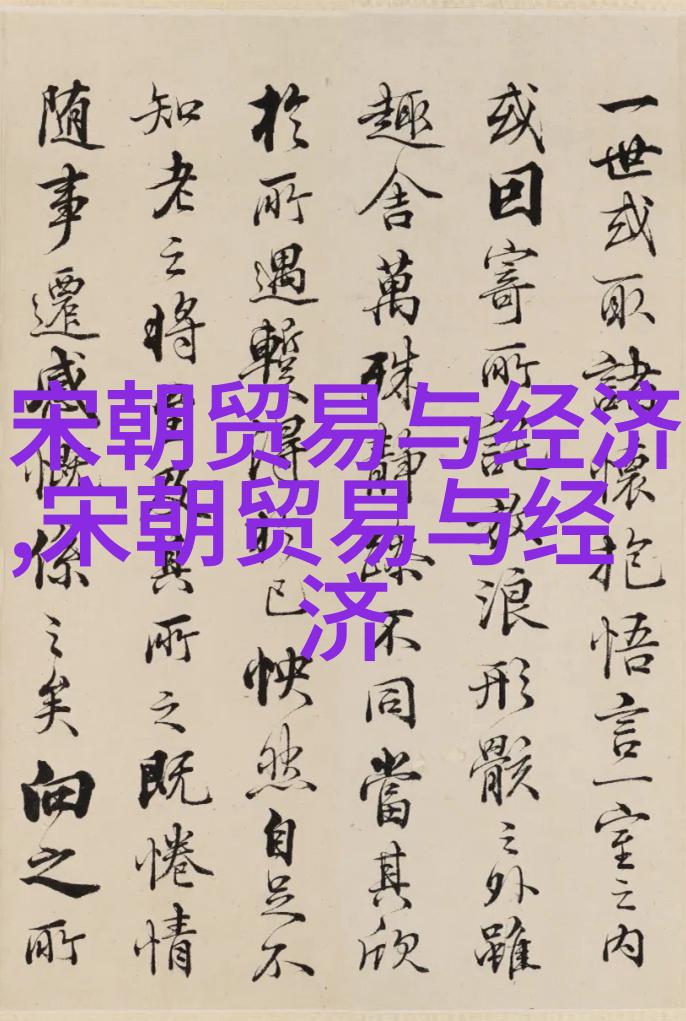 宋朝贸易与经济
,宋朝贸易与经
济
一世或取諸懷抱悟言一室之内
或囙寄所託放浪形骸之外雖
趣舍萬殊静躁不同當其欣
於所遇蹔得於已怏然自足不
知老之将至及其所之既惓情
随事遷感慨係之矣向之所